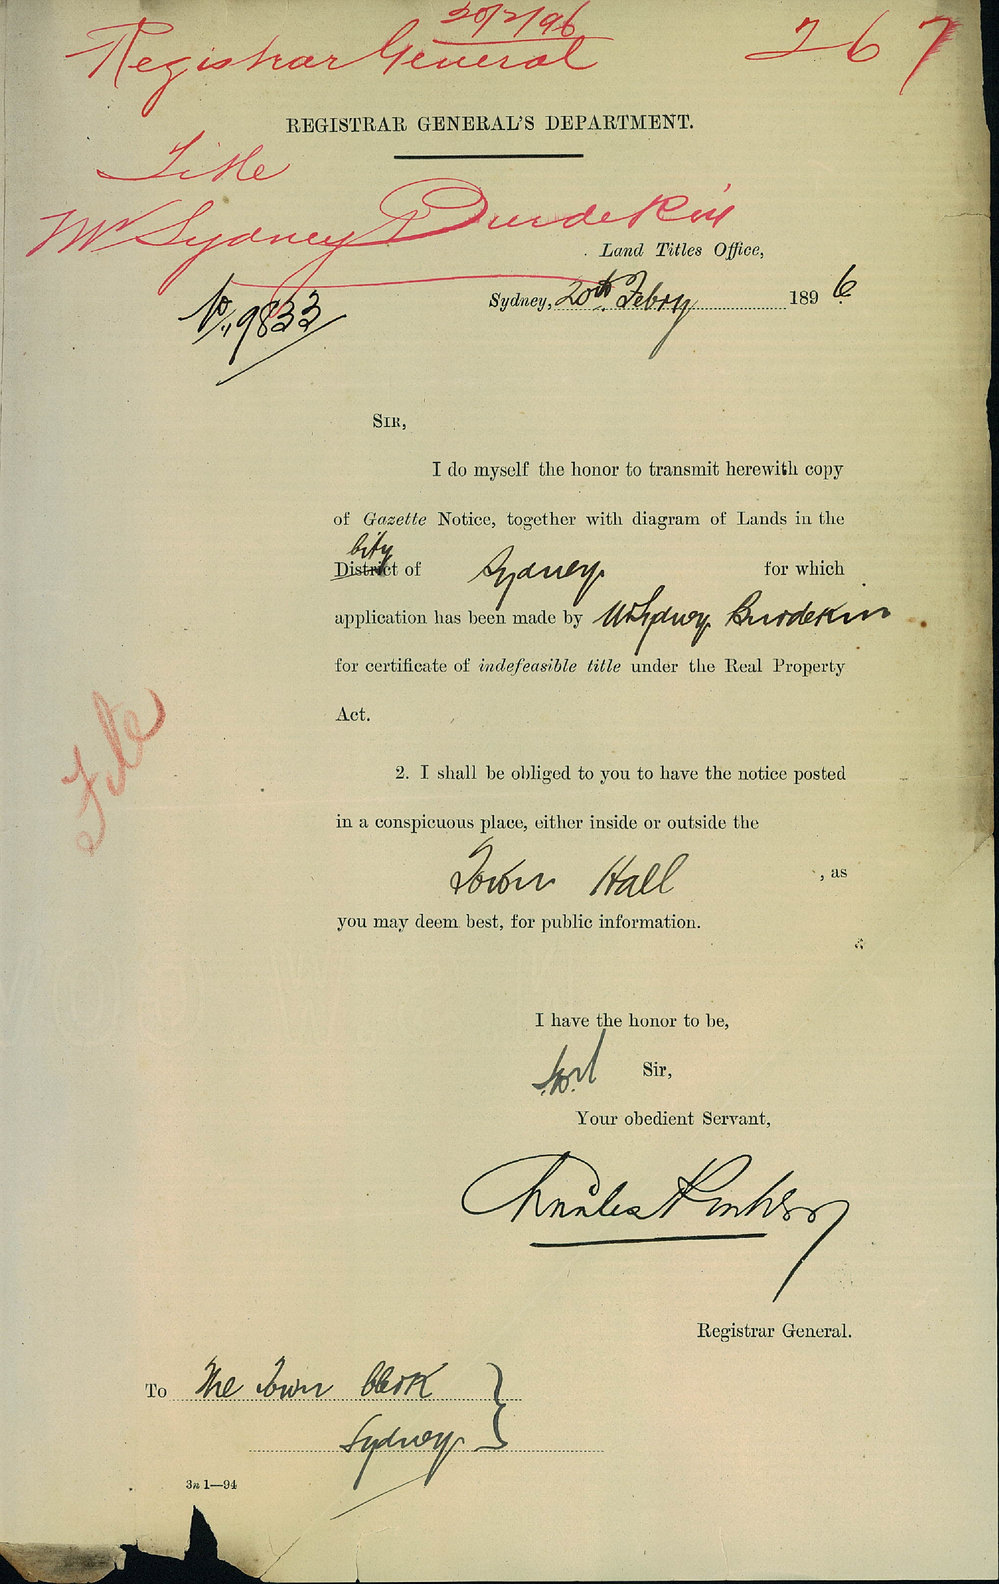 20/2/96
Registrar General
267
REGISTRAR GENERAL'S DEPARTMENT.
Title
Mr Sydney Burdekin
Land Titles Office,
Sydney, 20th Febry 1896
No. 9833
SIR,
I do myself the honor to transmit herewith copy
of Gazette Notice, together with diagram of Lands in the
City
District of Sydney for which
application has been made by Mr Sydney Burdekin
for certificate of indefeasible title under the Real Property
Act.
File
2. I shall be obliged to you to have the notice posted
in a conspicuous place, either inside or outside the
Town Hall, as
you may deem best, for public information.
I have the honor to be,
Sir,
Your obedient Servant,
Charles
Registrar General.
To The Town Clerk
Sydney
3n 1—94